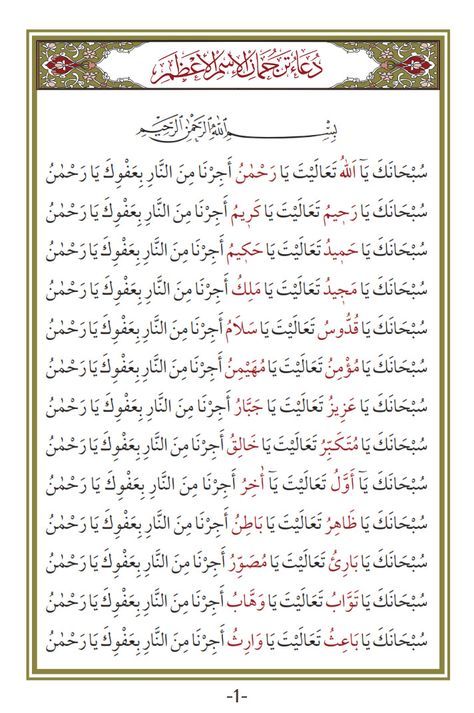 دُعَاءُ تَرْجُمَانِ الْاِسْمِ الْاَعْظَمِ
بِسْمِ اللهِ الرَّحْمٰنِ الرَّحِيمِ
سُبْحَانَكَ يَٓا اَللهُ تَعَالَيْتَ يَا رَحْمٰنُ أَجِرْنَا مِنَ النَّارِ بِعَفْوِكَ يَا رَحْمٰنُ
سُبْحَانَكَ يَا رَحِيمُ تَعَالَيْتَ يَا كَرِيمُ أَجِرْنَا مِنَ النَّارِ بِعَفْوِكَ يَا رَحْمٰنُ
سُبْحَانَكَ يَا حَمِيدُ تَعَالَيْتَ يَا حَكِيمُ أَجِرْنَا مِنَ النَّارِ بِعَفْوِكَ يَا رَحْمٰنُ
سُبْحَانَكَ يَا مَجِيدُ تَعَالَيْتَ يَا مَلِكُ أَجِرْنَا مِنَ النَّارِ بِعَفْوِكَ يَا رَحْمٰنُ
سُبْحَانَكَ يَا قُدُّوسُ تَعَالَيْتَ يَا سَلَامُ أَجِرْنَا مِنَ النَّارِ بِعَفْوِكَ يَا رَحْمٰنُ
سُبْحَانَكَ يَا مُؤْمِنُ تَعَالَيْتَ يَا مُهَيْمِنُ أَجِرْنَا مِنَ النَّارِ بِعَفْوِكَ يَا رَحْمٰنُ
سُبْحَانَكَ يَا عَزِيزُ تَعَالَيْتَ يَا جَبَّارُ أَجِرْنَا مِنَ النَّارِ بِعَفْوِكَ يَا رَحْمٰنُ
سُبْحَانَكَ يَا مُتَكَبِّرُ تَعَالَيْتَ يَا خَالِقُ أَجِرْنَا مِنَ النَّارِ بِعَفْوِكَ يَا رَحْمٰنُ
سُبْحَانَكَ يَٓا أَوَّلُ تَعَالَيْتَ يَٓا أٰخِرُ أَجِرْنَا مِنَ النَّارِ بِعَفْوِكَ يَا رَحْمٰنُ
سُبْحَانَكَ يَا ظَاهِرُ تَعَالَيْتَ يَا بَاطِنُ أَجِرْنَا مِنَ النَّارِ بِعَفْوِكَ يَا رَحْمٰنُ
سُبْحَانَكَ يَا بَارِئُ تَعَالَيْتَ يَا مُصَوِّرُ أَجِرْنَا مِنَ النَّارِ بِعَفْوِكَ يَا رَحْمٰنُ
سُبْحَانَكَ يَا تَوَّابُ تَعَالَيْتَ يَا وَهَّابُ أَجِرْنَا مِنَ النَّارِ بِعَفْوِكَ يَا رَحْمٰنُ
سُبْحَانَكَ يَا بَاعِثُ تَعَالَيْتَ يَا وَارِثُ أَجِرْنَا مِنَ النَّارِ بِعَفْوِكَ يَا رَحْمٰنُ
-1-